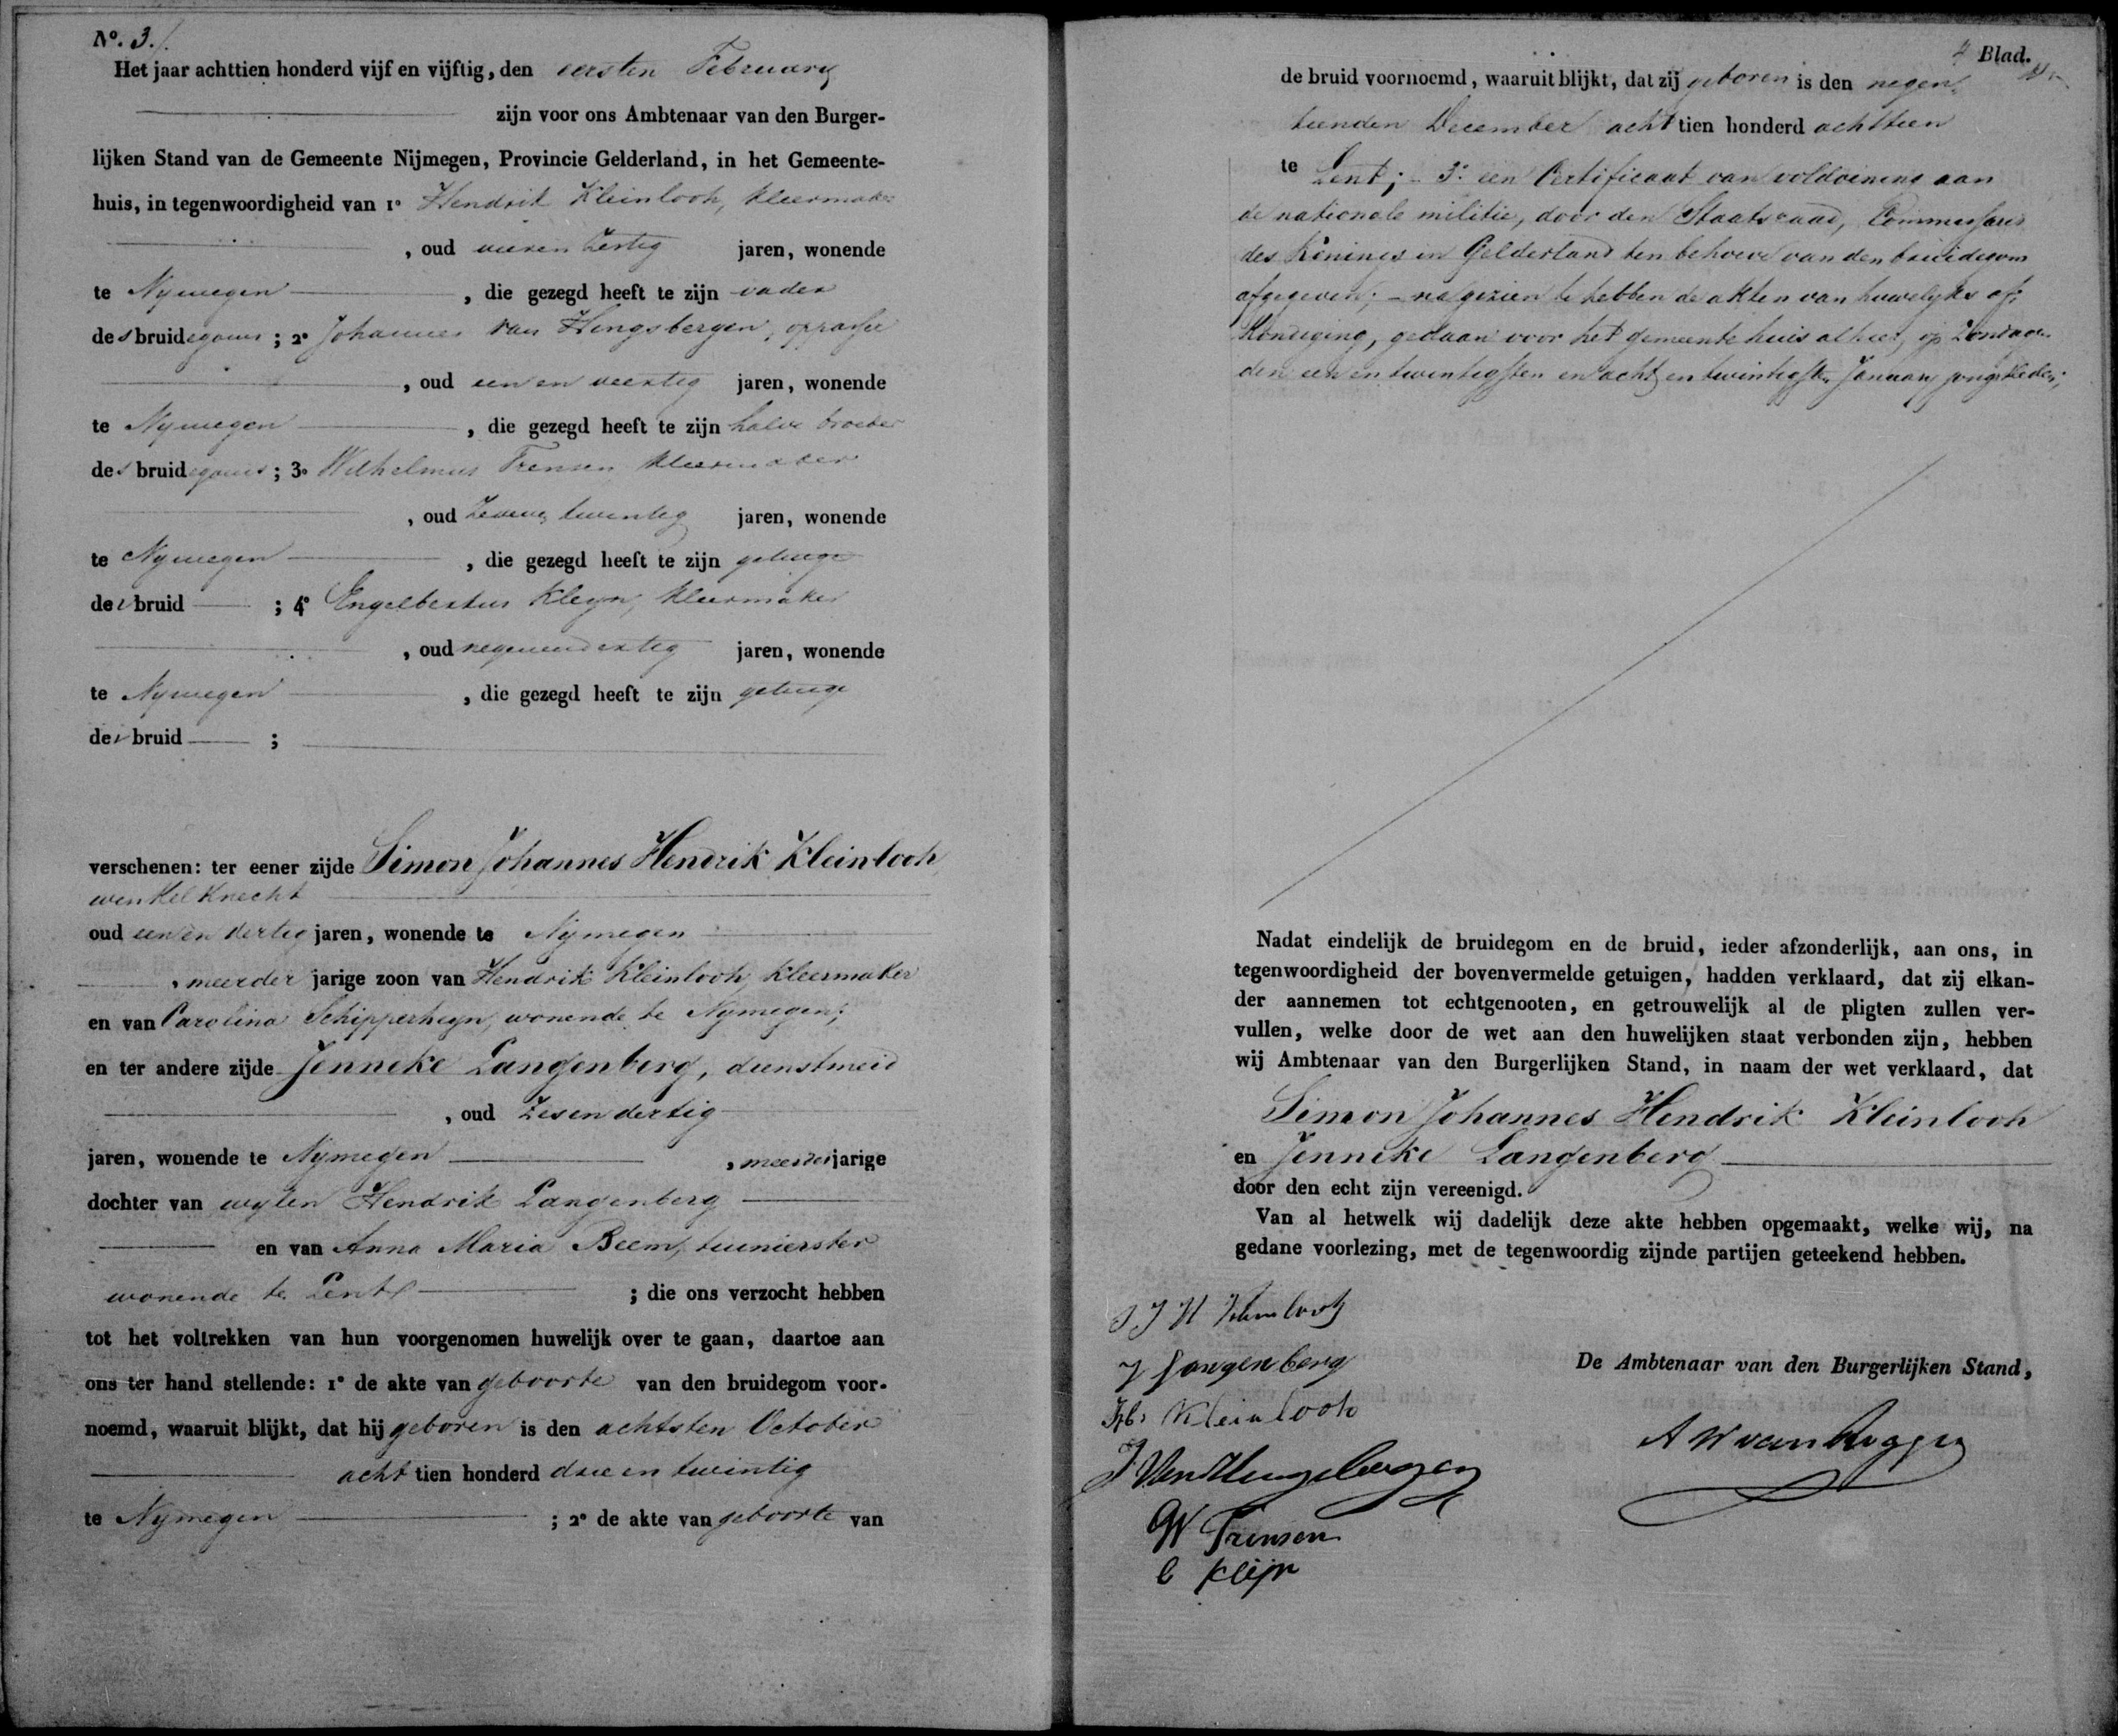 No. 3./.
Het jaar achttien honderd vijf en vijftig, den eersten February
zijn voor ons Ambtenaar van den Burger-
lijken Stand van de Gemeente Nijmegen, Provincie Gelderland, in het Gemeente-
huis, in tegenwoordigheid van 1o Hendrik Kleinlooh, kleermaker
, oud vieren Zestig jaren, wonende
te Nymegen , die gezegd heeft te zijn vader
des bruidegoms ; 2o Johannes van Hengsbergen, oppasser
, oud een en veertig jaren, wonende
te Nymegen , die gezegd heeft te zijn halve broeder
des bruidegoms ; 3o Wilhelmus Frensen kleermaker
, oud Zevenen twintig jaren, wonende
te Nymegen , die gezegd heeft te zijn getuige
der bruid ; 4o Engelbertus Kleyn, kleermaker
, oud negenendertig jaren, wonende
te Nymegen , die gezegd heeft te zijn getuige
der bruid ;
verschenen: ter eener zijde Simon Johannes Hendrik Kleinlooh,
winkel knecht
oud een en dertig jaren, wonende te Nymegen
, meerder jarige zoon van Hendrik Kleinlooh, kleermaker
en van Carolina Schipperheyn, wonende te Nymegen;
en ter andere zijde Jenneke Langenberg, dienstmeid
, oud Zesendertig
jaren, wonende te Nymegen , meerderjarige
dochter van wylen Hendrik Langenberg
en van Anna Maria Beem, tuinierster
wonende te Lent ; die ons verzocht hebben
tot het voltrekken van hun voorgenomen huwelijk over te gaan, daartoe aan
ons ter hand stellende: 1o de akte van geboorte van den bruidegom voor-
noemd, waaruit blijkt, dat hij geboren is den achtsten October
acht tien honderd drie en twintig
te Nymegen ; 2o de akte van geboorte van
4 Blad.
de bruid voornoemd, waaruit blijkt, dat zij geboren is den negen-
tienden December acht tien honderd achttien
te Lent; - 3o een Certificaat van voldoening aan
de nationale militie, door den Staatsraad, Commissaris
des Konings in Gelderland ten behoeve van den bruidegom
afgegeven; - na gezien te hebben de akten van huwelyks af-
kondiging, gedaan voor het gemeente huis alhier, op Zondagen
den een en twintigsten en acht en twintigsten January jongstleden;
Nadat eindelijk de bruidegom en de bruid, ieder afzonderlijk, aan ons, in
tegenwoordigheid der bovenvermelde getuigen, hadden verklaard, dat zij elkan-
der aannemen tot echtgenooten, en getrouwelijk al de pligten zullen ver-
vullen, welke door de wet aan den huwelijken staat verbonden zijn, hebben
wij Ambtenaar van den Burgerlijken Stand, in naam der wet verklaard, dat
Simon Johannes Hendrik Kleinlooh
en Jenneke Langenberg
door den echt zijn vereenigd.
Van al hetwelk wij dadelijk deze akte hebben opgemaakt, welke wij, na
gedane voorlezing, met de tegenwoordig zijnde partijen geteekend hebben.
S J H Kleinlooh
J Langenberg
De Ambtenaar van den Burgerlijken Stand,
Kleinlooh
J Van Hengsbergen
W Frensen
E Kleijn